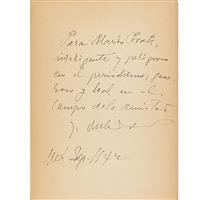 Para Mario Prat,
inteligente y peligroso
en el periodismo; gene
roso y leal en el
campo de la amistad
Mex Sep. 1942